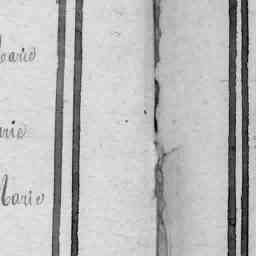 Marie
arie
Marie